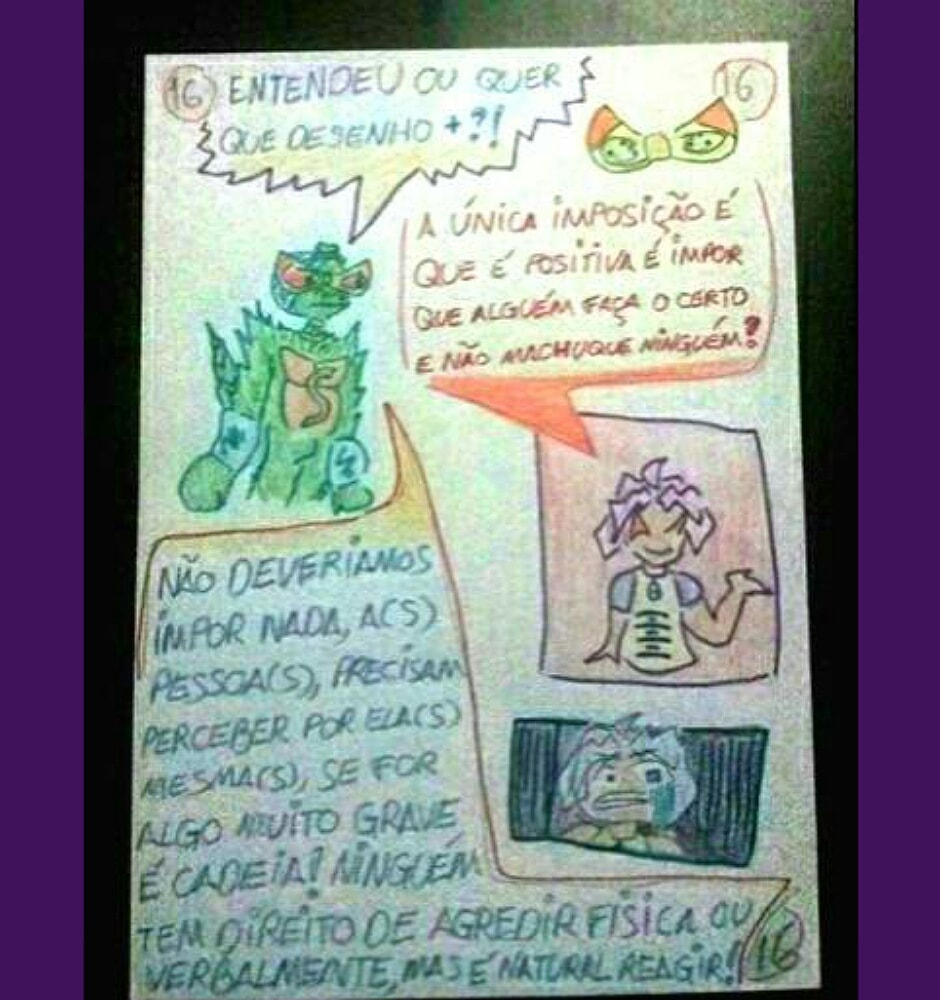 16 ENTENDEU OU QUER 16
QUE DESENHO +?!
A ÚNICA IMPOSIÇÃO É
QUE É POSITIVA É IMPOR
QUE ALGUÉM FAÇA O CERTO
E NÃO MACHUQUE NINGUÉM?
NÃO DEVERIAMOS
IMPOR NADA, A(S)
PESSOA(S), PRECISAM
PERCEBER POR ELA(S)
MESMA(S), SE FOR
ALGO MUITO GRAVE
É CADEIA! NINGUÉM
TEM DIREITO DE AGREDIR FISICA OU
VERBALMENTE, MAS É NATURAL REAGIR!
16